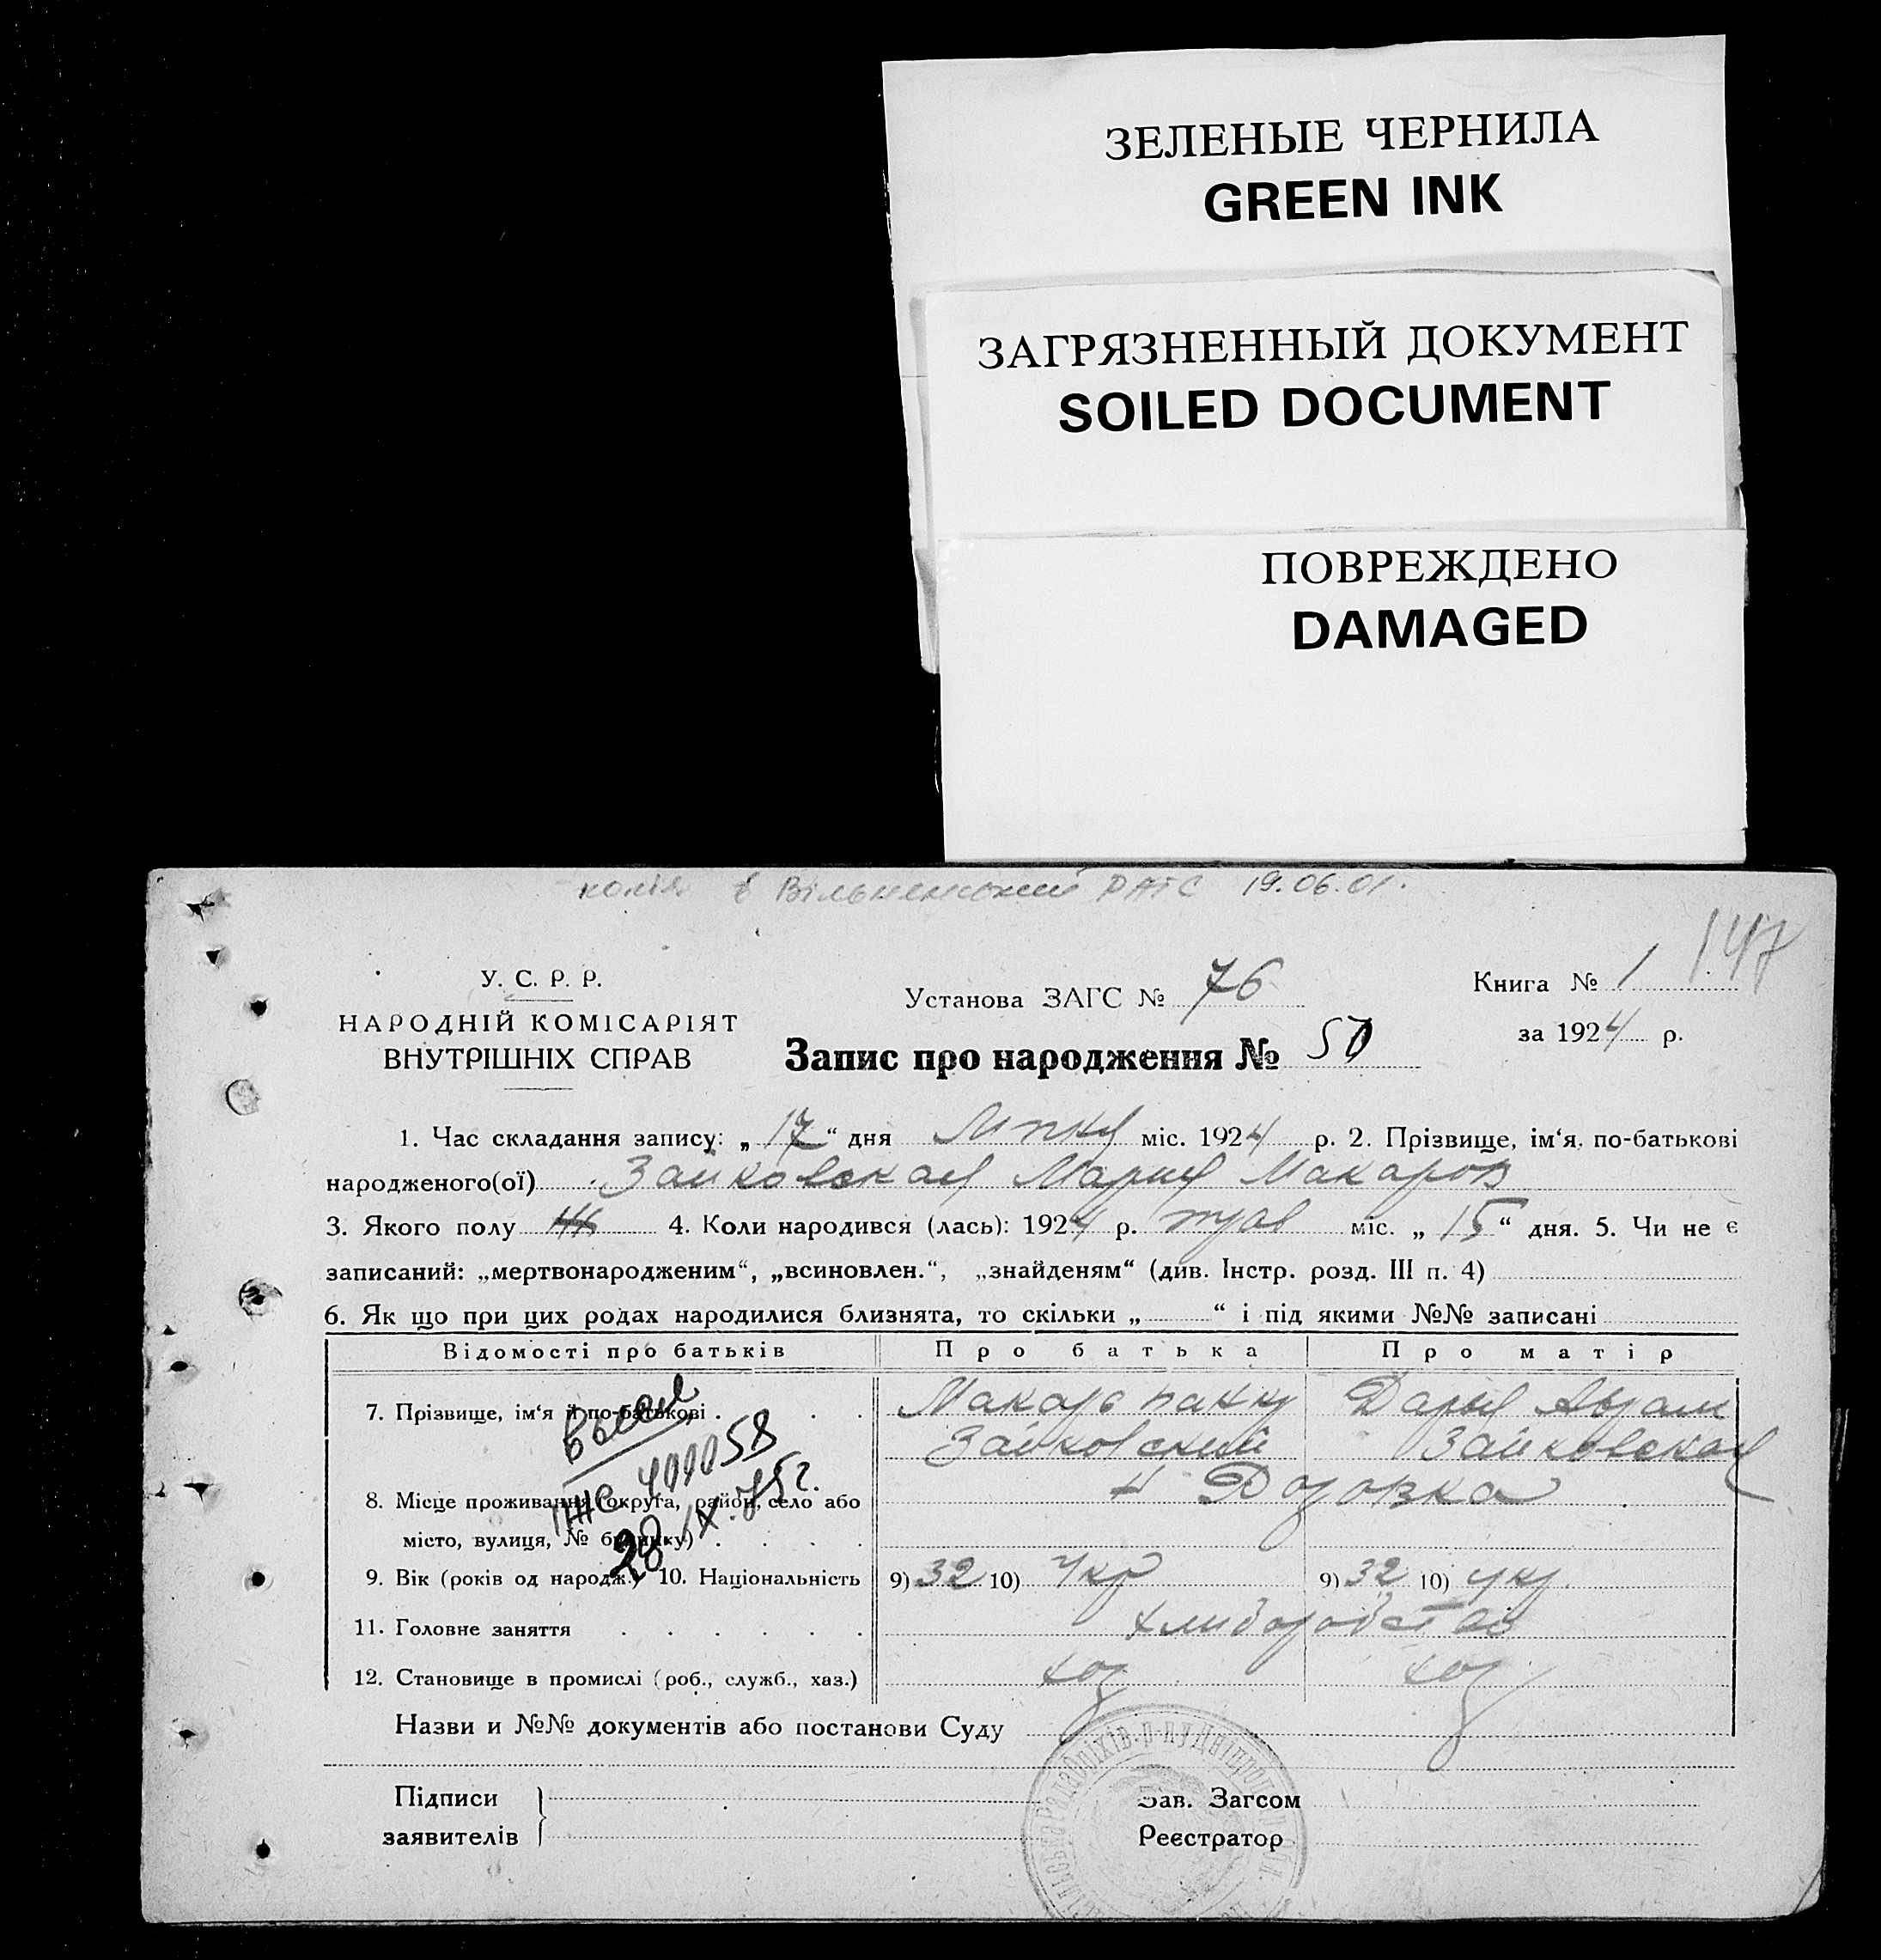 ЗЕЛЕНЫЕ ЧЕРНИЛА
GREEN INK
ЗАГРЯЗНЕННЫЙ ДОКУМЕНТ
SOILED DOCUMENT
ПОВРЕЖДЕНО
DAMAGED
копія в Вільнянський РАГС 19.06.01.
147
У. С. Р. Р.
НАРОДНІЙ КОМІСАРІЯТ
ВНУТРІШНІХ СПРАВ
Установа ЗАГС № 76
Книга № 1
за 1924 р.
Запис про народження № 50
1. Час складання запису: „17“ дня Липня міс. 1924 р. 2. Прізвище, ім‘я, по-батькові
народженого(ої) Зайковская Мария Макаров
3. Якого полу 4. Коли народився (лась): 1924 р. міс. „15“ дня. 5. Чи не є
записаний: „мертвонародженим“, „всиновлен.“, „знайденям“ (див. Інстр. розд. III п. 4)
6. Як що при цих родах народилися близнята, то скільки „ “ і під якими №№ записані
Відомості про батьків Про батька Про матір
7. Прізвище, ім‘я й по-батькові . . . Макар Дарья Абрам
Зайковский Зайковская
8. Місце проживання (округа, район, село або
місто, вулиця, № будинку) . . . .
9. Вік (років од народж.) 10. Національність 9) 32 10) Укр 9) 32 10) укр.
11. Головне заняття . . . . . . хлиборобство
12. Становище в промислі (роб., служб., хаз.) хоз хоз
28.IX.75г.
Назви и №№ документів або постанови Суду
Підписи
заявителів
Зав. Загсом
Реєстратор